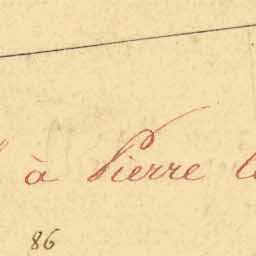 à Pierre
86